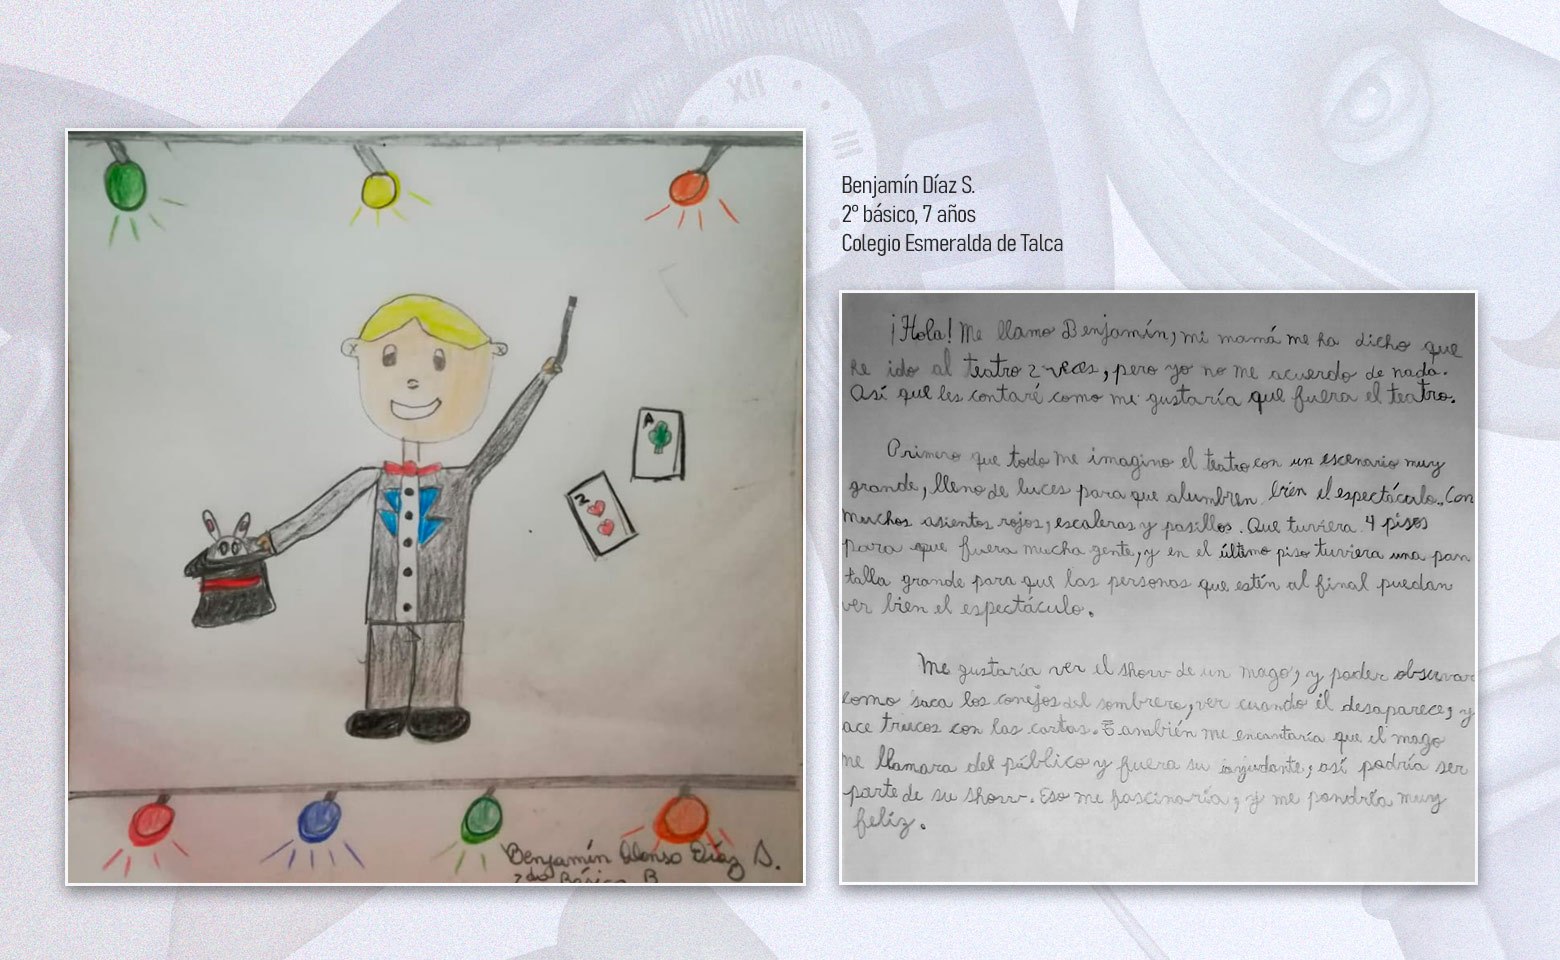 XII
Benjamín Díaz S.
2º básico, 7 años
Colegio Esmeralda de Talca
A
2
Benjamín Alonso Díaz S.
2do Básico B
¡Hola! Me llamo Benjamín, mi mamá me ha dicho que
he ido al teatro 2 veces, pero yo no me acuerdo de nada.
Así que les contaré como me gustaría que fuera el teatro.
Primero que todo me imagino el teatro con un escenario muy
grande, lleno de luces para que alumbren bien el espectáculo. Con
muchos asientos rojos, escaleras y pasillos. Que tuviera 4 pisos
para que fuera mucha gente, y en el último piso tuviera una pan
talla grande para que las personas que estén al final puedan
ver bien el espectáculo.
Me gustaría ver el show de un mago, y poder observar
como saca los conejos del sombrero, ver cuando él desaparece, y
ace trucos con las cartas. También me encantaría que el mago
me llamara del público y fuera su ayudante, así podría ser
parte de su show. Eso me fascinaría, y me pondría muy
feliz.